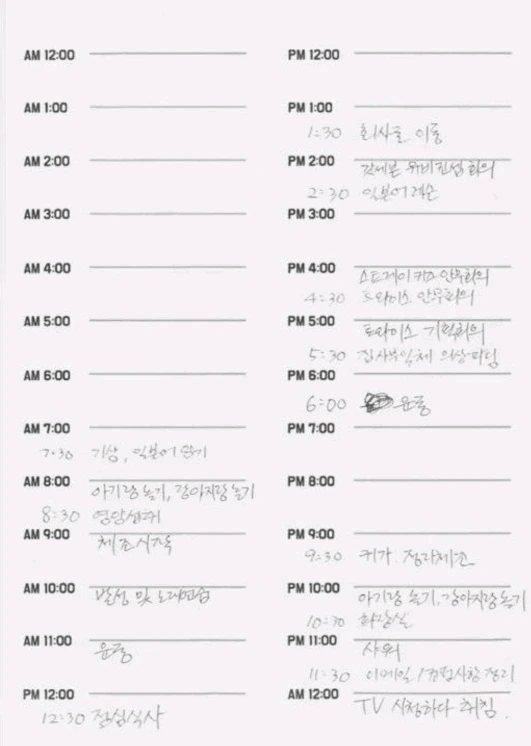 AM 12:00
AM 1:00
AM 2:00
AM 3:00
AM 4:00
AM 5:00
AM 6:00
AM 7:00
7:30 기상, 일본어 듣기
AM 8:00
아기랑 놀기, 강아지랑 놀기
8:30 영양섭취
AM 9:00
체조시작
AM 10:00
발성 및 노래연습
AM 11:00
운동
PM 12:00
12:30 점심식사
PM 12:00
PM 1:00
1:30 회사로 이동
PM 2:00
갓세븐 뮤비 컨셉회의
2:30 일본어 레슨
PM 3:00
PM 4:00
스트레이 키즈 안무회의
4:30 트와이스 안무회의
PM 5:00
트와이스 기획회의
5:30 집사부일체 의상피팅
PM 6:00
6:00 운동
PM 7:00
PM 8:00
PM 9:00
9:30 귀가 정리체조
PM 10:00
아기랑 놀기, 강아지랑 놀기
10:30 화장실
PM 11:00
샤워
11:30 이메일 / 컨펌사항 정리
AM 12:00
TV 시청하다 취침.